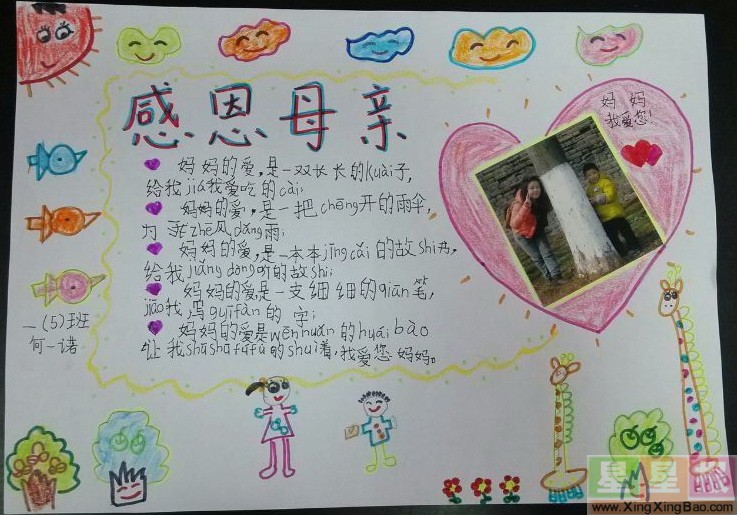 感恩母亲
妈妈
我爱您！
妈妈的爱，是一双长长的kuài子，
给我jiá我爱吃的cài；
妈妈的爱，是一把chēng开的雨伞，
为我zhē风dǎng雨；
妈妈的爱，是一本本jīngcǎi的故shi书，
给我jiǎng dòng听的故shi；
妈妈的爱是一支细细的qiān笔，
jiāo我写guīfàn的字；
妈妈的爱是wēnnuǎn的huáibào
让我shūshūfúfú的shuì着，我爱您妈妈。
一(5)班
何一诺
星星
www.XingXingBao.com